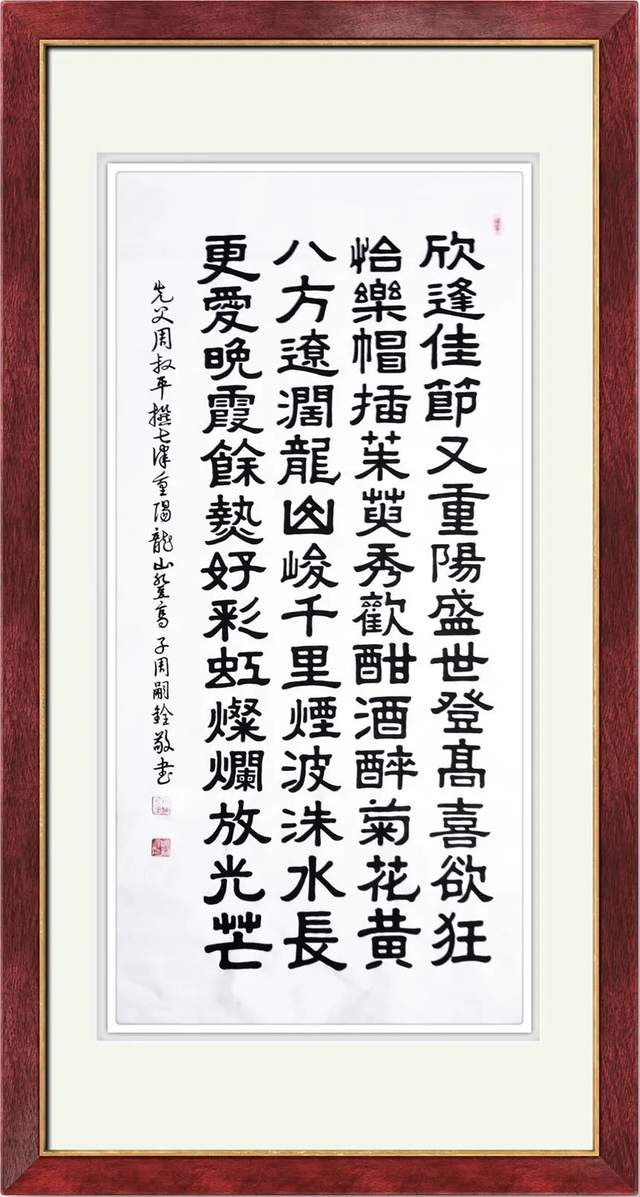 欣逢佳節又重陽盛世登髙喜欲狂
怡樂帽插茱萸秀歡酣酒醉菊花黃
八方遼濶龍山峻千里煙波洙水長
更愛晚霞餘熱好彩虹燦爛放光芒
先父周叔平撰七律重陽龍山登高 子周嗣銓敬書